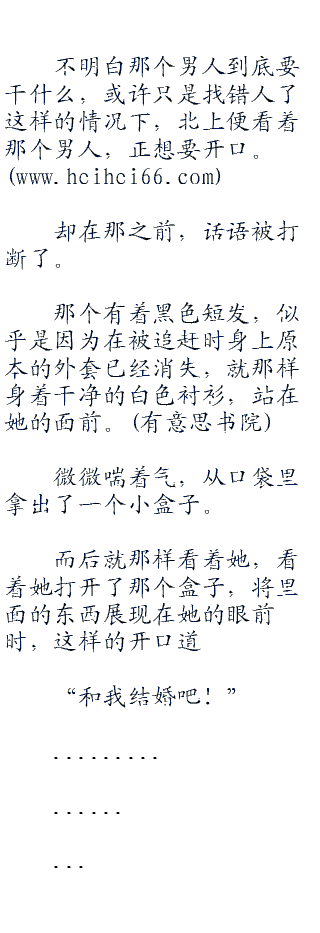 不明白那个男人到底要
干什么，或许只是找错人了
这样的情况下，北上便看着
那个男人，正想要开口。
(www.hcihci66.com)
却在那之前，话语被打
断了。
那个有着黑色短发，似
乎是因为在被追赶时身上原
本的外套已经消失，就那样
身着干净的白色衬衫，站在
她的面前。(有意思书院)
微微喘着气，从口袋里
拿出了一个小盒子。
而后就那样看着她，看
着她打开了那个盒子，将里
面的东西展现在她的眼前
时，这样的开口道
“和我结婚吧！”
.........
......
...